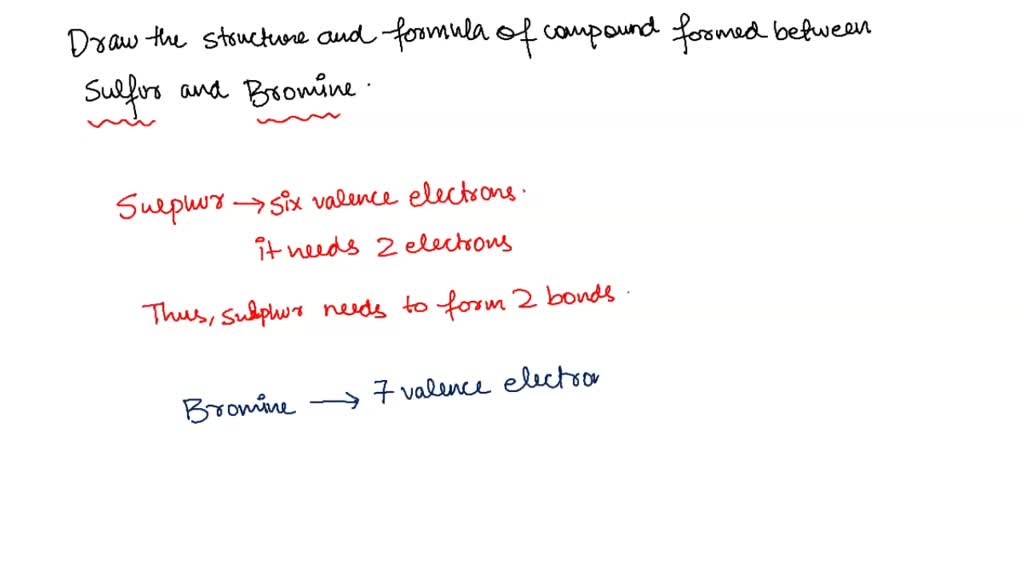 Draw the structure and formula of compound formed between
Sulfur and Bromine.
Sulphur → six valence electrons.
it needs 2 electrons
Thus, sulphur needs to form 2 bonds.
Bromine → 7 valence electro